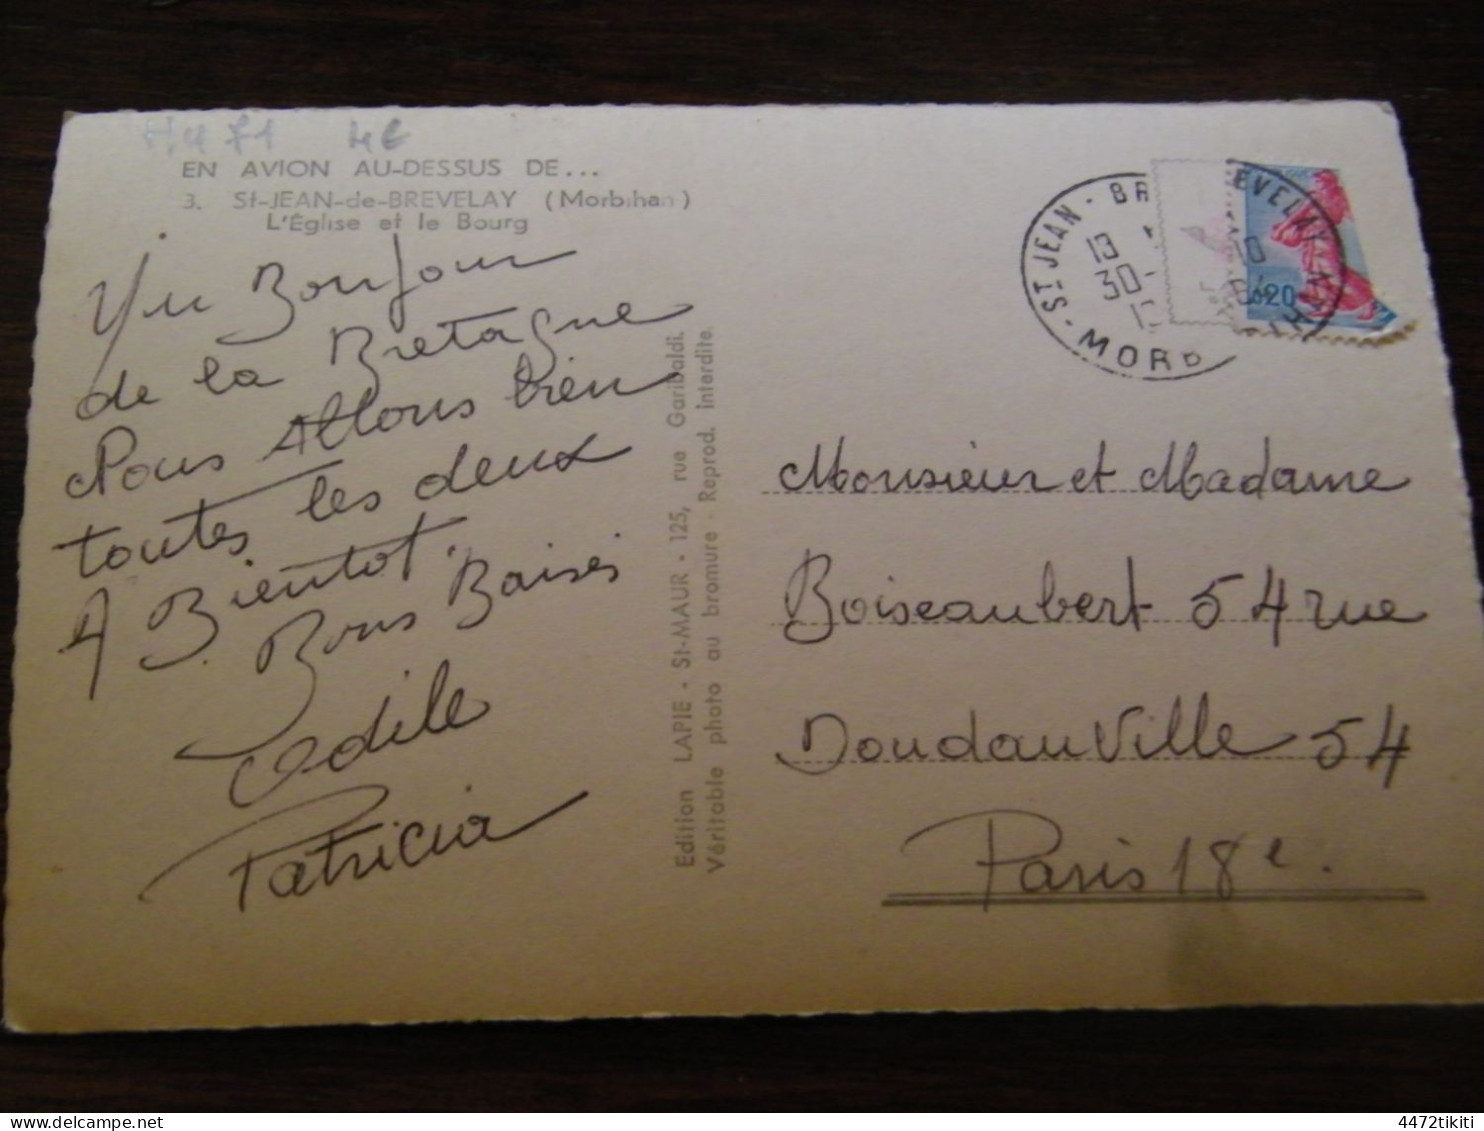 H471 4€
EN AVION AU-DESSUS DE...
3. St-JEAN-de-BREVELAY (Morbihan)
L'Église et le Bourg
Un Bonjour
de la Bretagne
Nous Allons bien
toutes les deux
A Bientot.
Bons Baisés
Odile
Patricia
Edition LAPIE - St-MAUR - 125, rue Garibaldi.
Véritable photo au bromure - Reprod. interdite.
ST JEAN - BR EVELAY
13
30-
10
MORB IH
0,20
Monsieur et Madame
Boiseaubert 54 rue
DoudauVille 54
Paris 18e.
4472tikiti